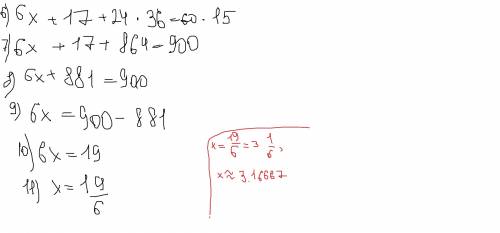 6) 6x + 17 + 24 · 36 = 60 · 15
7) 6x + 17 + 864 = 900
8) 6x + 881 = 900
9) 6x = 900 - 881
10) 6x = 19
11) x = 19/6
x = 19/6 = 3 1/6;
x ≈ 3.16667